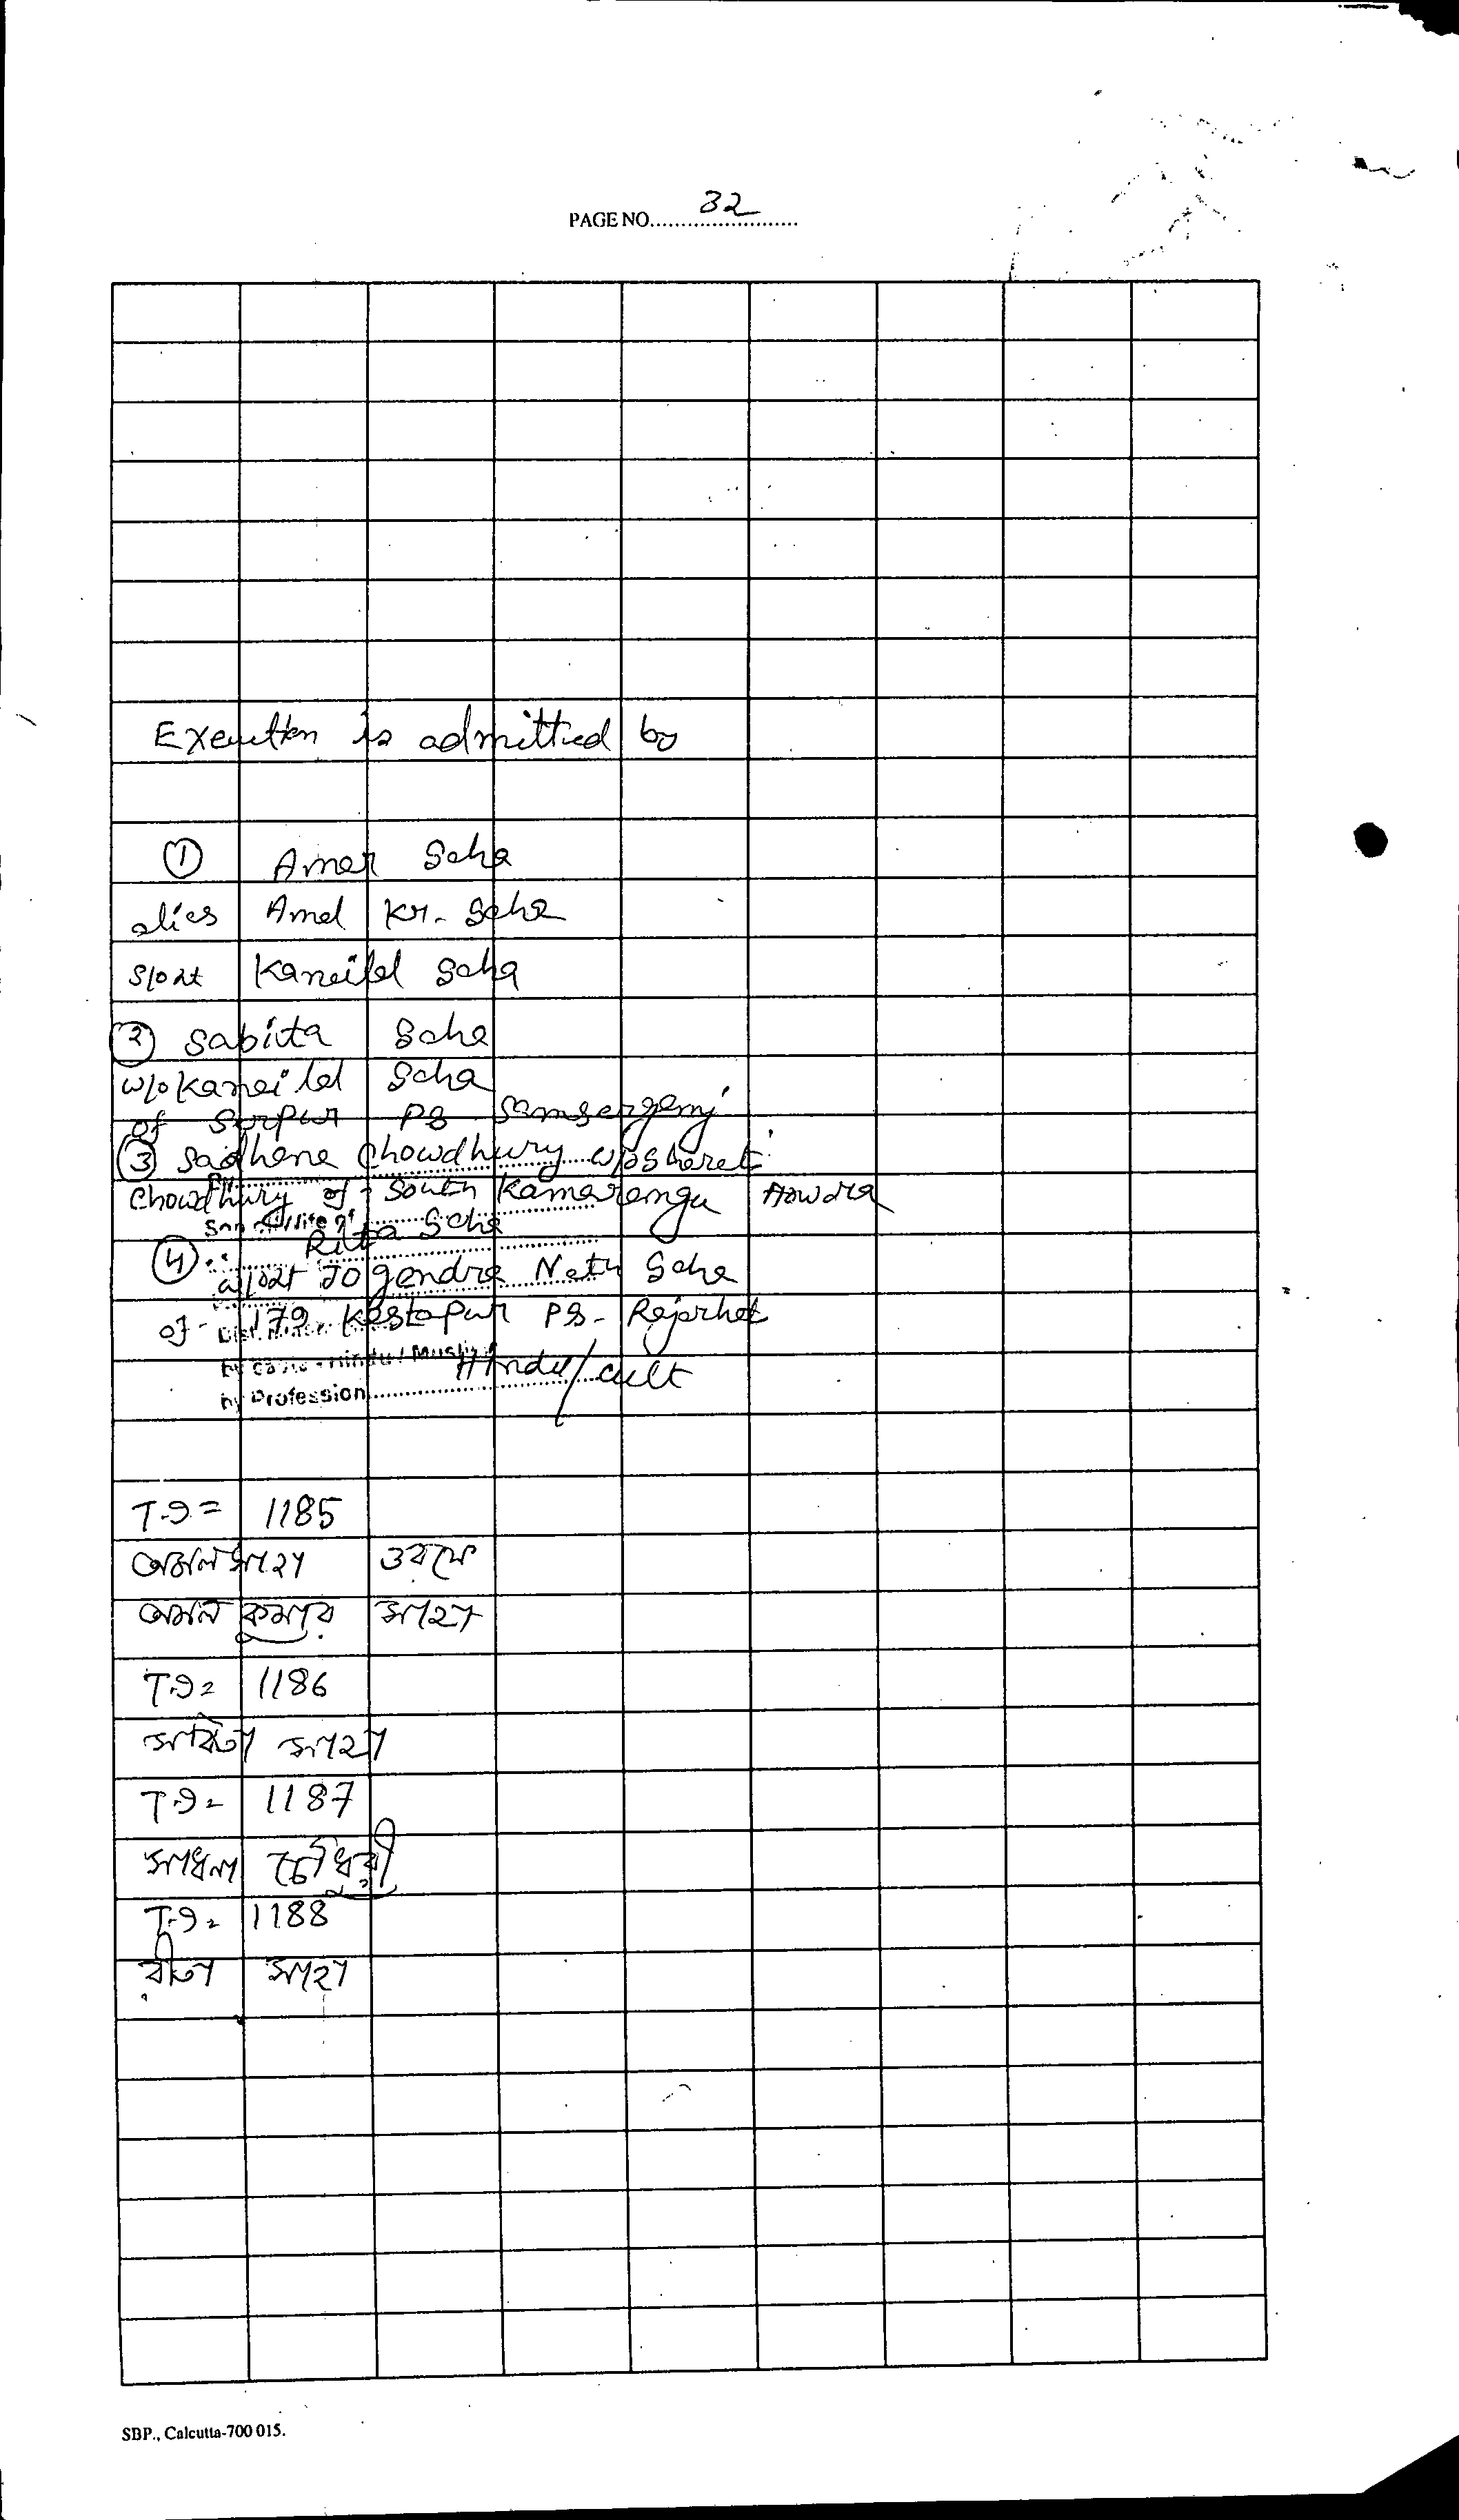 PAGE NO. 32
Execution is admitted by
① Amar Saha
alias Amal Kr. Saha
S/o Lt Kanailal Saha
② Sabita Saha
W/o Kanailal Saha
of Serpur PS Samserganj
③ Sadhana Chowdhury W/o Sharat
Chowdhury of South Kamaranga Howdra
Son / Wife of
④ Rita Saha
W/o Lt Jogendra Nath Saha
of 179 Kestopur PS- Rajarhat
by Caste - Hindu / Muslim Hindu / cult
by Profession
T.I = 1185
অমল সাহা ওরফে
অমল কুমার সাহা
T.I = 1186
সবিতা সাহা
T.I = 1187
সাধনা চৌধুরী
T.I = 1188
রীতা সাহা
SBP., Calcutta-700 015.